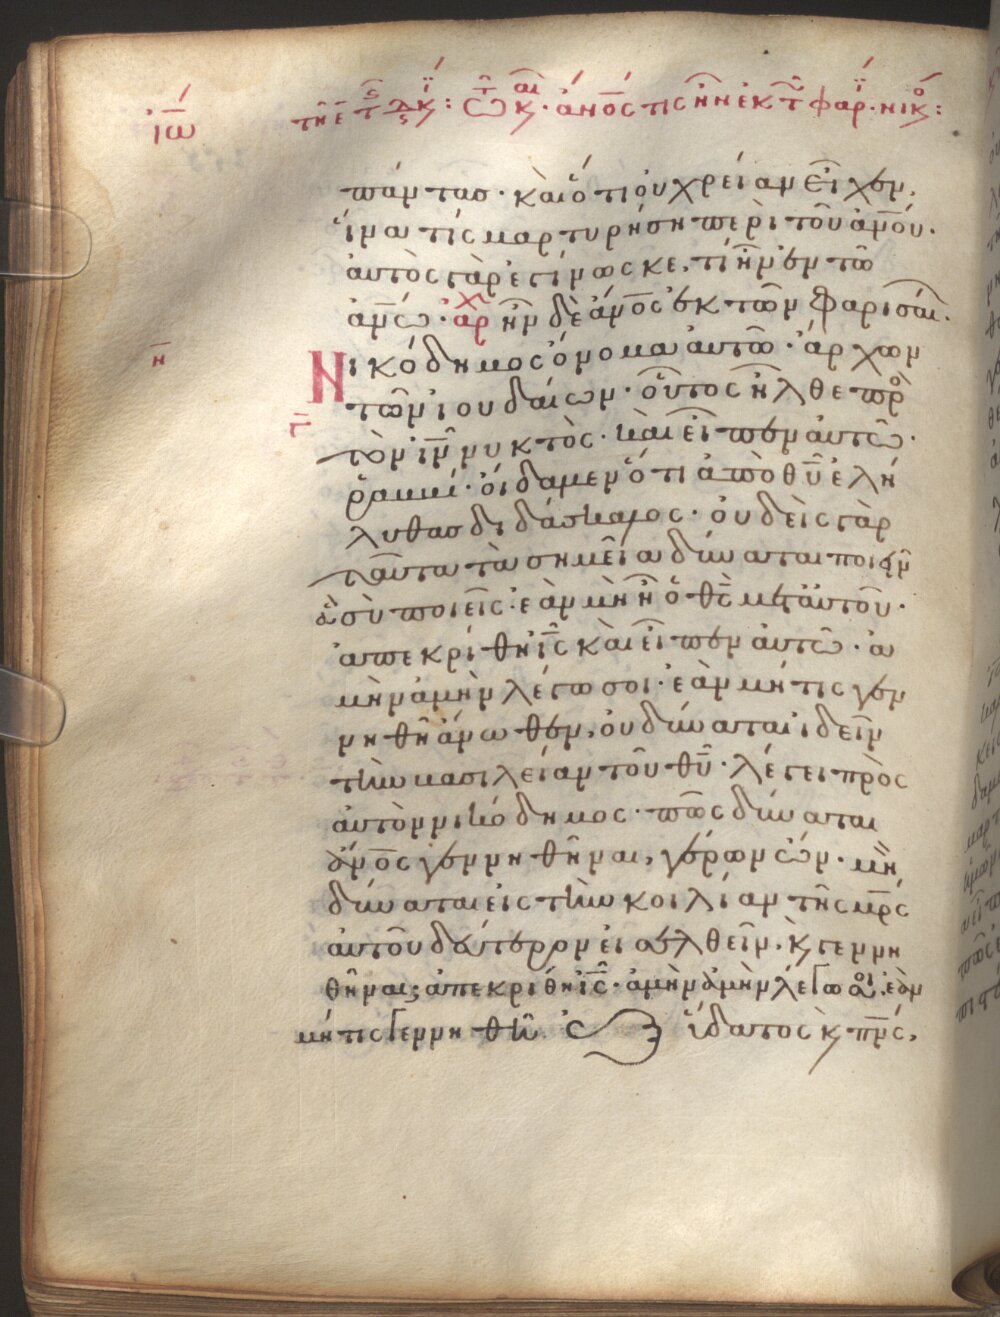 ἰω
τῆ ε̄ τ διακι: τῶ κ αι· ἀν̅ος τις ἦν ἐκ τ φαρ· νικο:
πάντας· καὶ ὅτι οὐ χρείαν εἶχεν,
ἵνα τίς μαρτυρήση περὶ τοῦ ἀν̅ου·
αὐτὸς γὰρ ἐγίνωσκε, τί ἦν ἐν τῶ
ἀν̅ω· ἀρχ ἦν δὲ ἀν̅ος ἐκ τῶν φαρισαί·
η̄
Νικόδημος ὄνομα αὐτῶ· ἄρχων
τῶν ἰουδαίων· οὗτος ἦλθε πρὸ
τὸν ἰν̅ νυκτὸς· καὶ εἶπεν αὐτῶ·
ῥαββί· οἴδαμεν ὅτι ἀπὸ θυ̅ ἐλή
λυθας διδάσκαλος· οὐδεὶς γὰρ
ταῦτα τὰ σημεῖα δύναται ποιεῖν
ἃ σὺ ποιεῖς· ἐὰν μὴ ἦ ὁ θς̅ μετ αὐτοῦ·
ἀπεκρίθη ις̅ καὶ εἶπεν αὐτῶ· ἀ
μὴν ἀμὴν λέγω σοι· ἐὰν μή τις γεν
νηθῆ ἄνωθεν, οὐ δύναται ἰδεῖν
τὴν βασιλείαν τοῦ θυ̅· λέγει πρὸς
αὐτὸν νικόδημος· πῶς δύναται
ἀν̅ος γεννηθῆναι, γέρων ὤν· μὴ
δύναται εἰς τὴν κοιλίαν τῆς μρ̅ς
αὐτοῦ δεύτερον εἰσελθεῖν, κ γεννη
θῆναι; ἀπεκρίθη ις̅· ἀμὴν ἀμὴν λέγω σοι· ἐὰν
μή τις γεννηθῆ ἐξ ὕδατος κ πν̅ς,